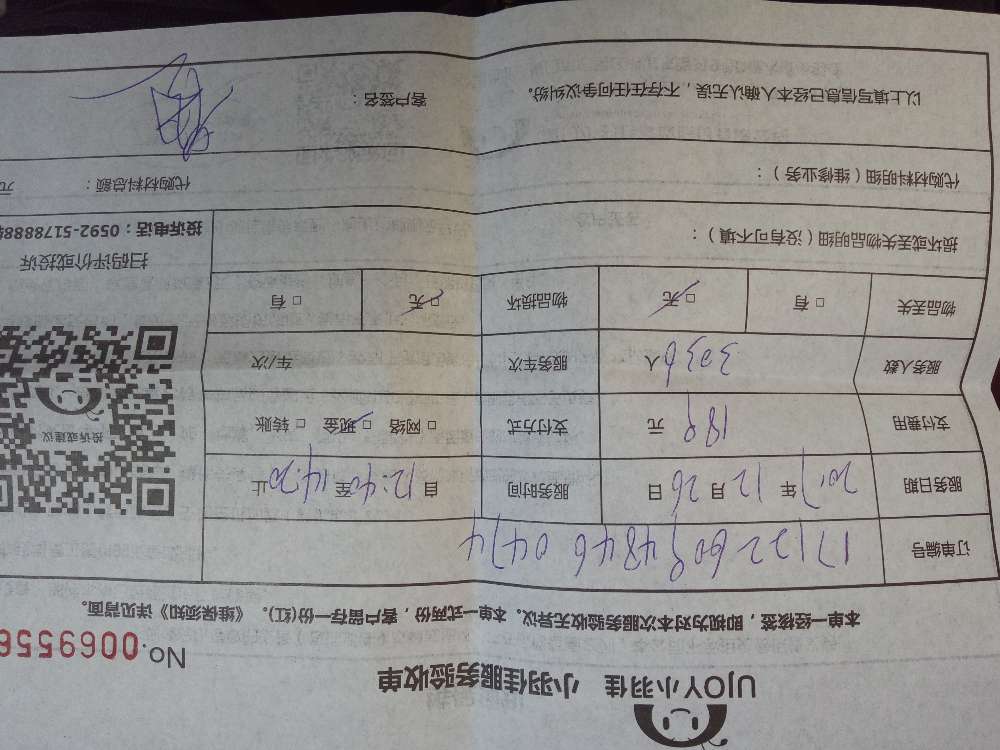 UJOY小羽佳 小羽佳服务验收单
No.0069556
本单一经核签，即视为对本次服务验收无异议。本单一式两份，客户留存一份(红)。《维保须知》详见背面。
订单编号
服务日期 2017 年 12 月 26 日 服务时间 自 12:40 至 14:20 止
支付费用 189 元 支付方式 □ 网络 □ 现金 □ 转账
服务人数 人 服务车次 车/次
物品丢失 □ 有 □ 无 物品损坏 □ 无 □ 有
投诉或建议
扫码评价或投诉
投诉电话：0592-5178888
损坏或丢失物品明细（没有可不填）：
代购材料明细（维修业务）： 代购材料总额： 元
以上填写信息已经本人确认无误，不存在任何争议纠纷。 客户签名：